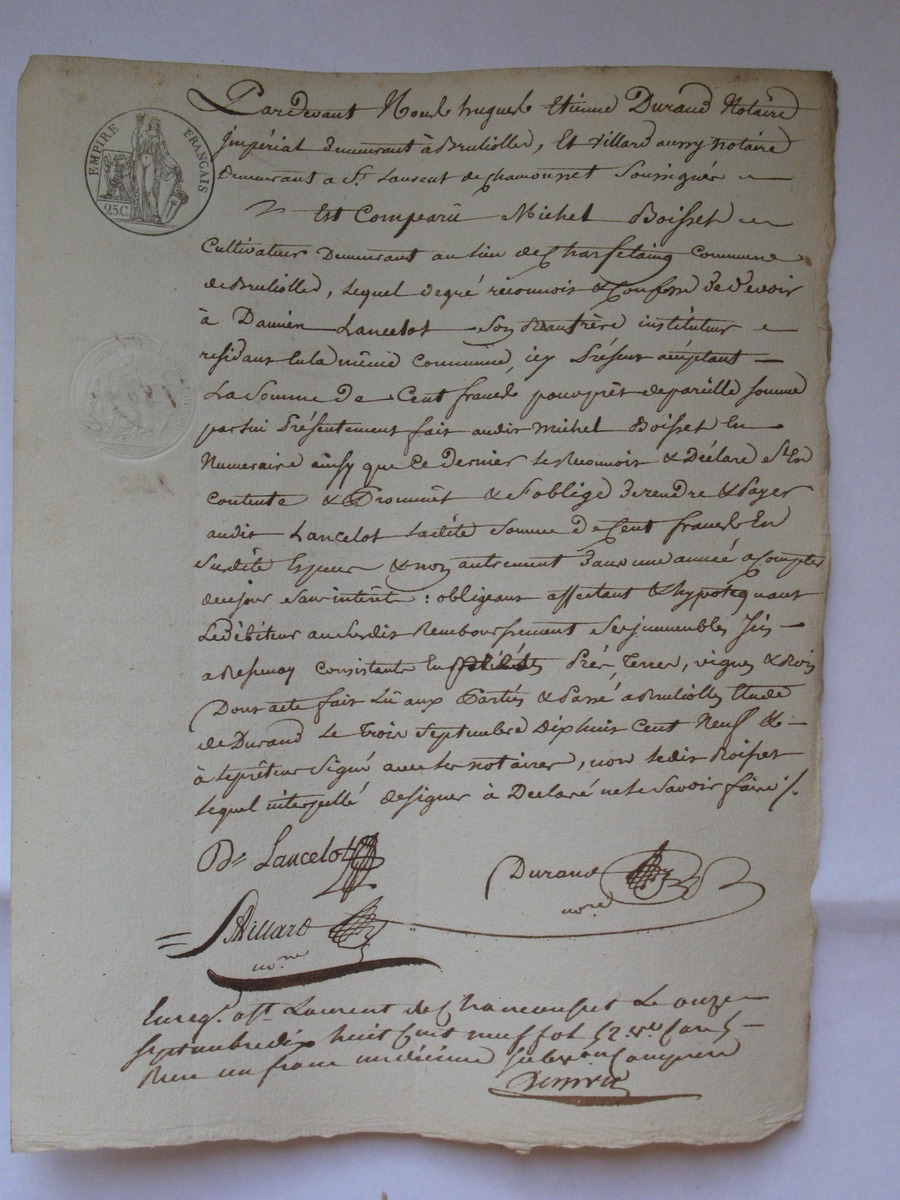 EMPIRE FRANÇAIS
25 C.
Pardevant Nous hugues Etienne Durand Notaire
Impérial demeurant à Brulliolles, Et Villard aussy notaire
Demeurant a St. Laurent de Chamousset Soussignés
Est Comparû Michel Boisset
Cultivateur Demeurant au lieu de Charfetaing Commune
de Brulliolles, lequel de gré reconnois & Confesse de devoir
à Damien Lancelot Son Beaufrère instituteur
residant en la même Commune, icy Présent acceptant
La Somme de Cent francs pour prêt de pareille somme
par lui Présentement fait audit Michel Boisset En
Numeraire ainsy que ce dernier le Reconnois & Déclare s'En
contente & Promet & s'oblige de rendre & Payer
audit Lancelot ladite Somme de Cent francs En
Susdite Espece & non autrement dans une année a Compter
de ce jour sans interêts : obligeant affectant & hypotequant
Le débiteur au susdit Remboursement Ses immeubles Sis
a Consistants En Prés, Terres, vignes & Bois
Dont acte fait Lû aux Parties & Passé a Brulliolles Etude
de Durand Le Trois Septembre dix huit Cent Neuf &
à le prêteur Signé avec les notaires, non ledit Boisset
lequel interpellé de signer à Declaré ne le Savoir faire ./.
Ds Lancelot
Durand
nore
Villard
nore
Enreg. a St Laurent de Chamousset Le onze
septembre dix huit cent neuf fol 52 vo Case 5
Reçu un franc un décime Subvention Comprise